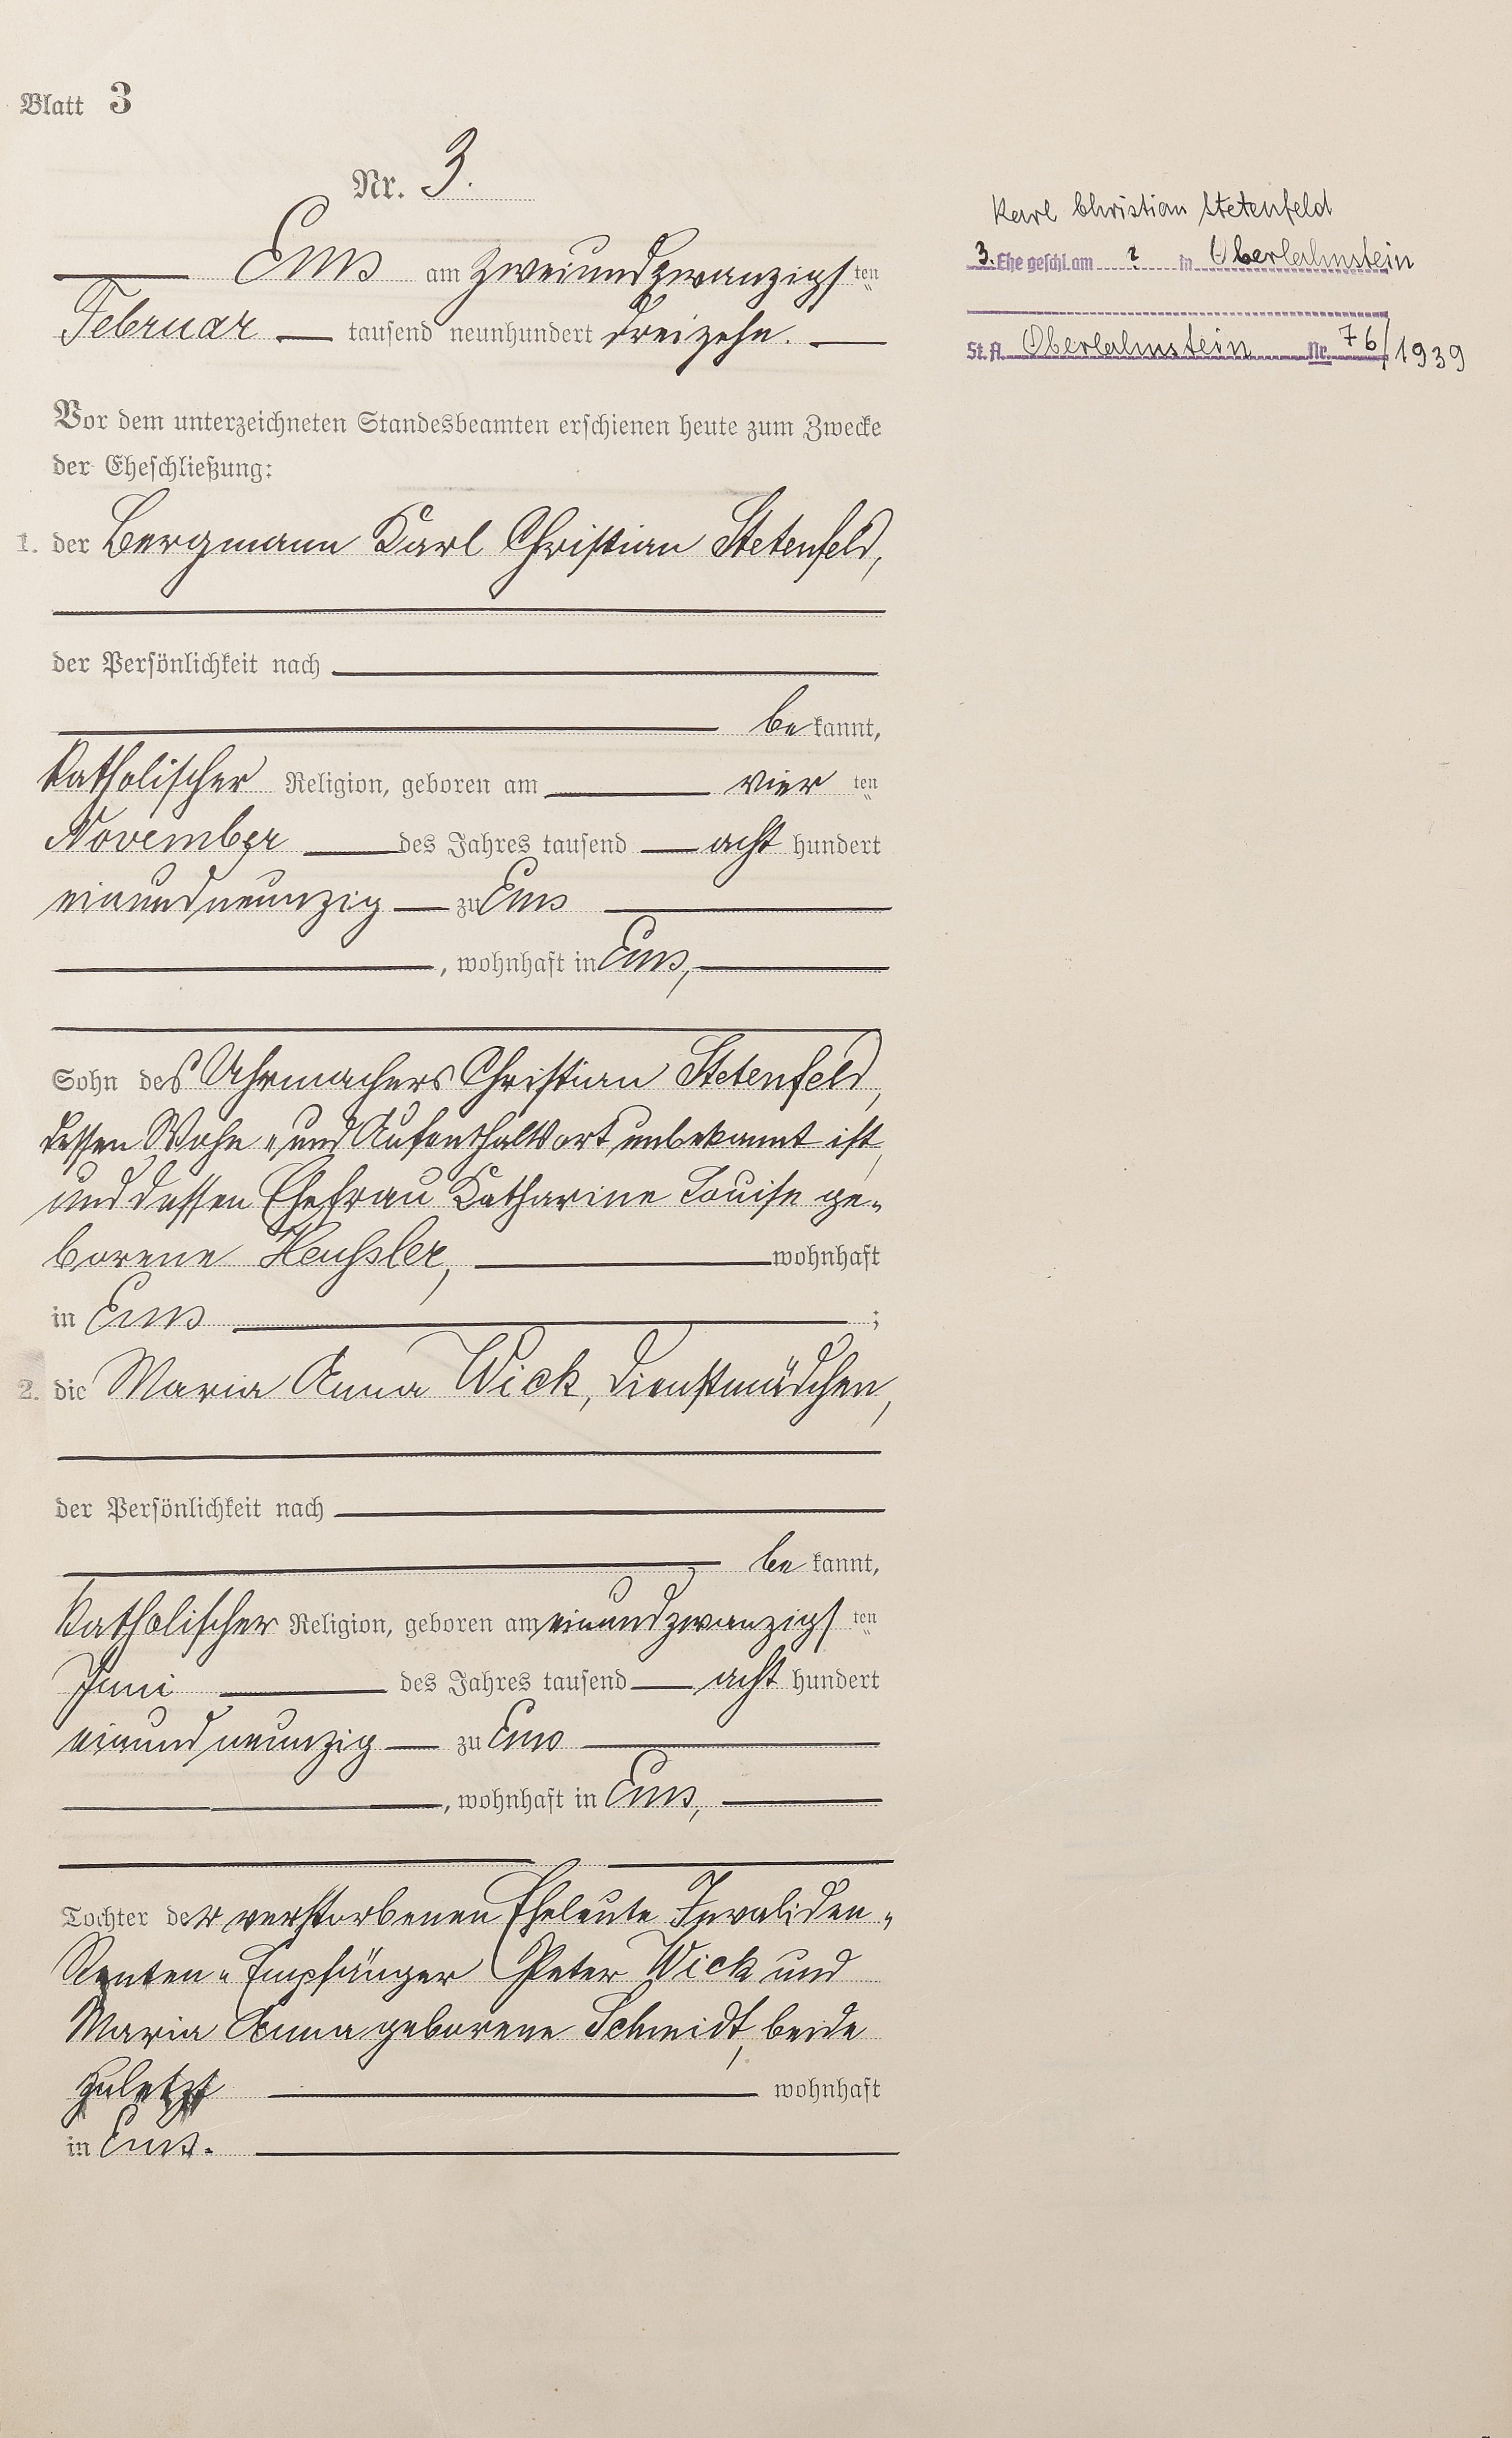 Blatt 3
Nr. 3.
Ems am zweiundzwanzigsten
Februar tausend neunhundert dreizehn.
Vor dem unterzeichneten Standesbeamten erschienen heute zum Zwecke
der Eheschließung:
1. der Bergmann Karl Christian Stetenfeld,
der Persönlichkeit nach
bekannt,
katholischer Religion, geboren am vierten
November des Jahres tausend achthundert
einundneunzig zu Ems
, wohnhaft in Ems,
Sohn des Uhrmachers Christian Stetenfeld,
dessen Wohn- und Aufenthaltsort unbekannt ist,
und dessen Ehefrau Katharine Louise ge-
borene Heußler, wohnhaft
in Ems ;
2. die Maria Anna Wick, Dienstmädchen,
der Persönlichkeit nach
bekannt,
katholischer Religion, geboren am einundzwanzigsten
Juni des Jahres tausend achthundert
einundneunzig zu Ems
, wohnhaft in Ems,
Tochter der verstorbenen Eheleute Invaliden-
Renten-Empfänger Peter Wick und
Maria Anna geborene Schmidt, beide
zuletzt wohnhaft
in Ems.
Karl Christian Stetenfeld
3. Ehe geschl. am ? in Oberlahnstein
St. A. Oberlahnstein Nr. 76/1939